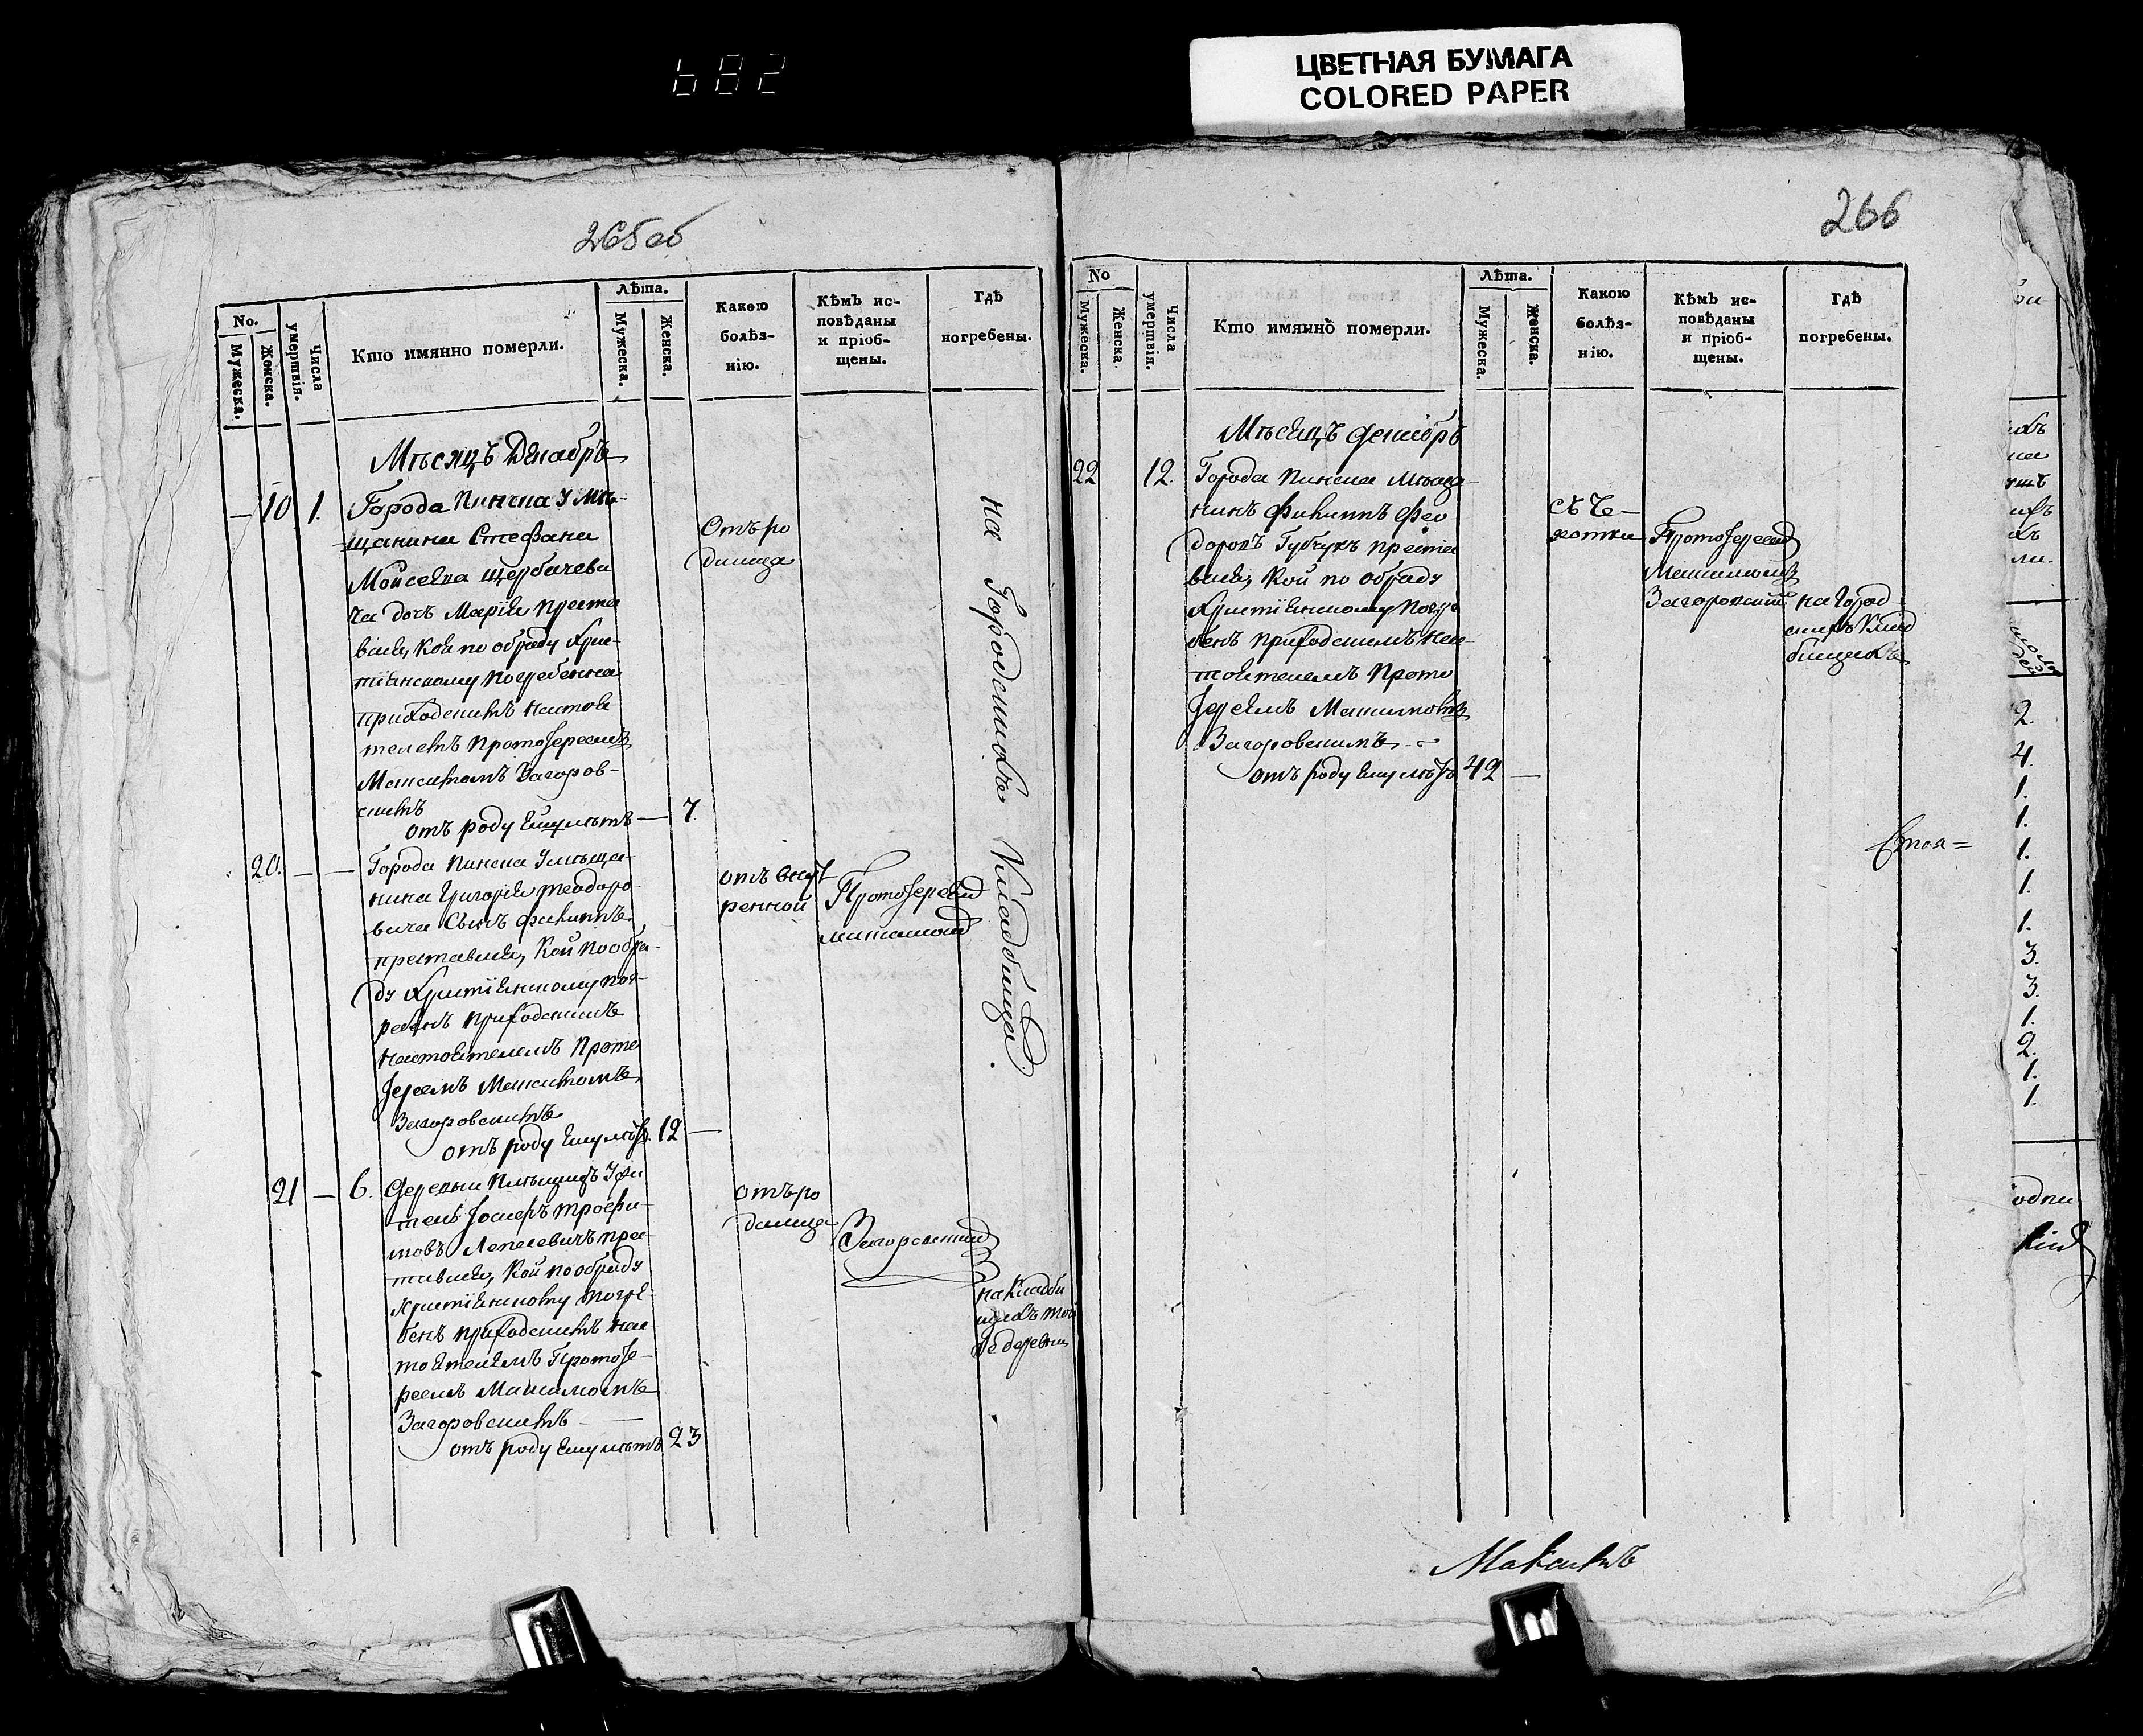 682
ЦВЕТНАЯ БУМАГА
COLORED PAPER
265 об
No.
Мужеска.
Женска.
Числа
умертвія.
Кто имянно померли.
Лѣта.
Мужеска.
Женска.
Какою
болѣз-
нію.
Кѣмъ ис-
повѣданы
и пріоб-
щены.
Гдѣ
погребены.
Мѣсяцъ Декабръ
— 10 1.
Города Пинска У мѣ-
щанина Стефана
Мойсеева Щербачеви
ча дочь Марія преста
вися, Коя по обряду Хри-
тіянскому погребенна
приходскимъ настоя
телемъ протоіереемъ
Максимомъ Загоров-
скимъ
отъ роду Ему лѣтъ — 7.
Отъ ро
димца
20. — —
Города Пинска У мѣща-
нина Григорія теодоро
вича Сынъ Филиппъ
преставися, Кой по обря-
ду Христіянскому пог-
ребенъ приходскимъ
настоятелемъ Прото
Іереемъ Максимомъ
Загоровскимъ
отъ роду Ему лѣтъ 12 —
отъ внут
ренной
Протоіерей
Максимъ
21 — 6.
Деревни
тель Іосифъ трофи-
мовъ Лепесевичъ прес-
тавися, Кой по обряду
Христіянскому погре-
бенъ приходскимъ нас-
тоятелемъ Протоіе-
реемъ Максимомъ
Загоровскимъ —
отъ роду Ему лѣтъ 23
отъ ро
димца
Загоровский
на Кладби
щахъ той
же деревни
на Городскихъ Кладбищахъ.
266
No
Мужеска.
Женска.
Числа
умертвія.
Кто имянно померли.
Лѣта.
Мужеска.
Женска.
Какою
болѣз-
нію.
Кѣмъ ис-
повѣданы
и пріоб-
щены.
Гдѣ
погребены.
Мѣсяцъ декабръ
22 12.
Города Пинска Мѣща-
нинъ Филиппъ Фео-
доровъ Губчукъ преста
вися, Кой по обряду
Христіянскому погре
бенъ приходскимъ нас-
тоятелемъ Прото
Іереемъ Максимомъ
Загоровскимъ
отъ роду Ему лѣтъ 42 —
съ Че-
хотки
Протоіерей
Максимъ
Загоровский
на Город-
скихъ Клад
бищахъ
Максимъ
2.
4.
1.
1.
1.
1.
1.
3.
3.
1.
2.
1.
1.